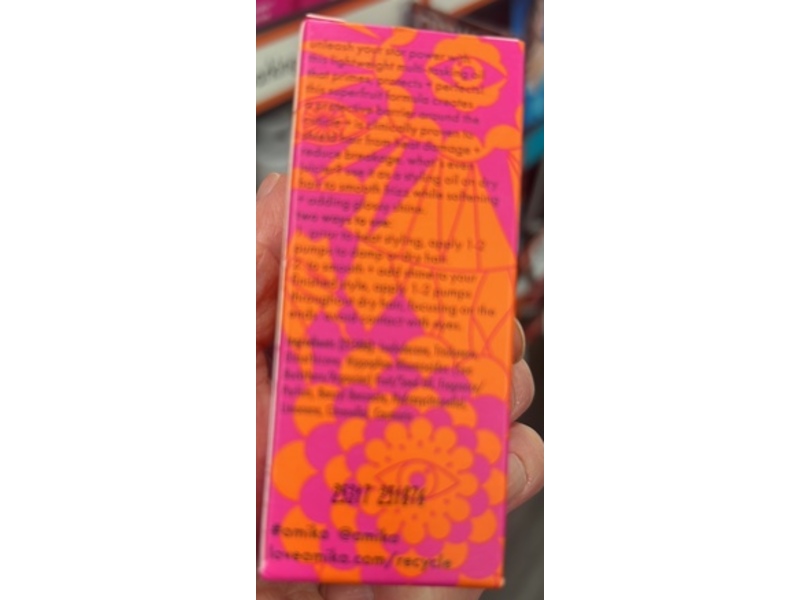 unleash your star power with
this lightweight multi-tasking oil
that primes, protects + perfects.
this superfruit formula creates
a protective barrier around the
cuticle + is clinically proven to
shield hair from heat damage +
reduce breakage. what's even
use it as a styling oil on dry
hair to smooth frizz while softening
+ adding glossy shine.
two ways to use:
1. prior to heat styling, apply 1-2
pumps to damp or dry hair.
2. to smooth + add shine to your
finished style, apply 1-2 pumps
throughout dry hair, focusing on the
ends. avoid contact with eyes.
Ingredients
Hippophae Rhamnoides Fruit
Fragrance/
Parfum, Benzyl Benzoate,
Limonene, Linalool,
#amika @amika
loveamika.com/recycle